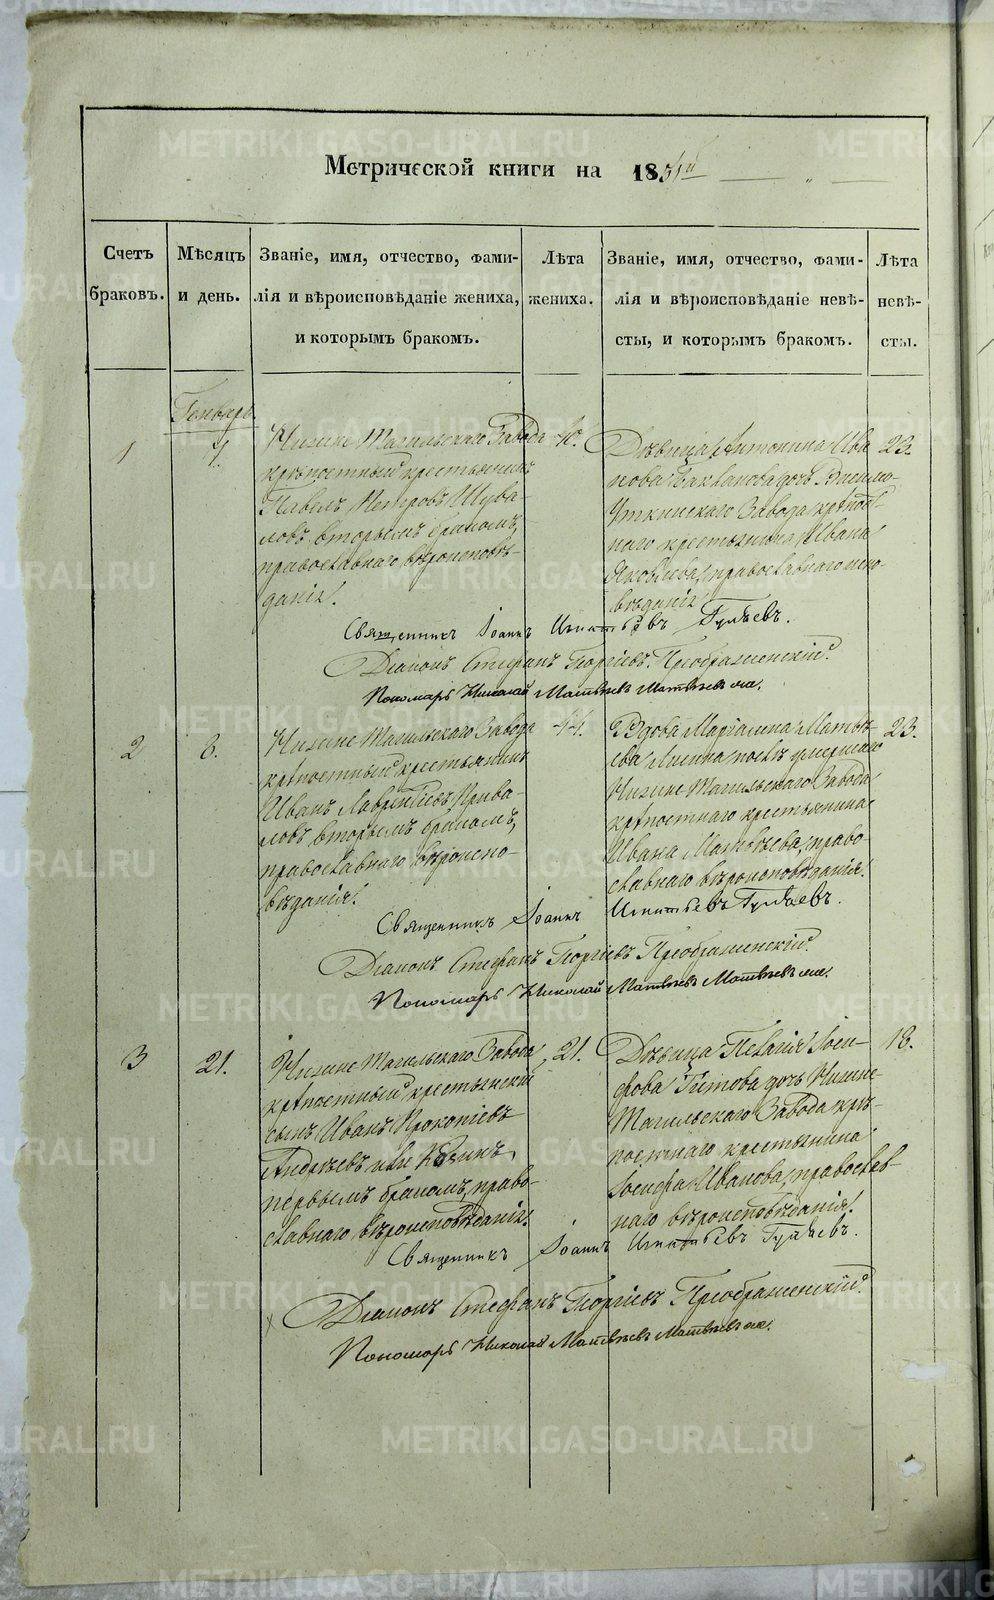 METRIKI.GASO-URAL.RU
Метрической книги на 1851й
Счетъ браковъ.
Мѣсяцъ и день.
Званіе, имя, отчество, фами-
лія и вѣроисповѣданіе жениха,
и которымъ бракомъ.
Лѣта жениха.
Званіе, имя, отчество, фами-
лія и вѣроисповѣданіе невѣ-
сты, и которымъ бракомъ.
Лѣта невѣ-
сты.
Генварь.
1
Нижне Тагильскаго Завода
крѣпостный крестьянинъ
Павелъ Петровъ Шува-
ловъ, вторымъ бракомъ,
православнаго вѣроисповѣ-
данія.
Дѣвица Антонина Ива
нова дочь
Уткинскаго Завода крѣпост
наго крестьянина Ивана
Яковлева, православнаго испо-
вѣданія
23.
Священникъ Іоаннъ Игнатьевъ Гуляевъ.
Діаконъ Стефанъ Георгіевъ Преображенскій.
Пономарь Николай Матвѣевъ
2
8.
Нижне Тагильскаго Завода
крѣпостный крестьянинъ
Иванъ Лаврентіевъ Прива-
ловъ вторымъ бракомъ,
православнаго вѣроиспо-
вѣданія.
44.
Вдова Маріамна Матвѣ-
ева послѣ умершаго
Нижне Тагильскаго Завода
крѣпостнаго крестьянина
Ивана право-
славнаго вѣроисповѣданія.
23.
Священникъ Іоаннъ Игнатьевъ Гуляевъ.
Діаконъ Стефанъ Георгіевъ Преображенскій.
Пономарь Николай Матвѣевъ
3
21.
Нижне Тагильскаго Завода
крѣпостный крестьянскій
сынъ Иванъ Прокопіевъ
Андреевъ
первымъ бракомъ, право-
славнаго вѣроисповѣданія.
21.
Дѣвица Пелагія Іоси-
фова Титова дочь Нижне-
Тагильскаго Завода крѣ-
постнаго крестьянина
Іосифа Иванова, православ-
наго вѣроисповѣданія.
18.
Священникъ Іоаннъ Игнатьевъ Гуляевъ.
Діаконъ Стефанъ Георгіевъ Преображенскій.
Пономарь Николай Матвѣевъ